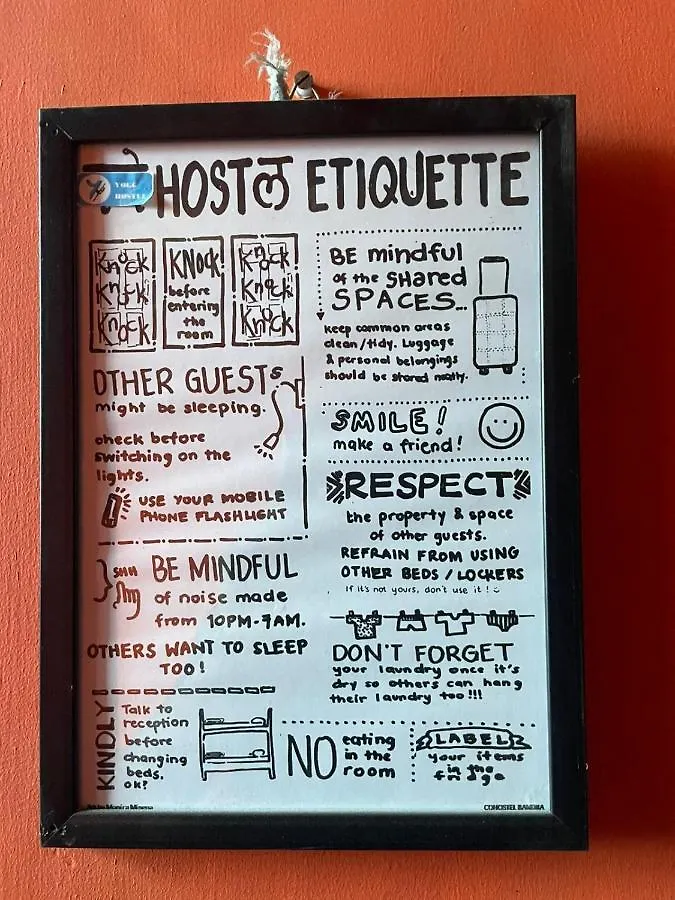 HOSTल ETIQUETTE
YOLO
HOSTEL
Knock
Knock
Knock
KNOCK!
before
entering
the
room
Knock
Knock
Knock
OTHER GUESTS
might be sleeping.
check before
switching on the
lights.
USE YOUR MOBILE
PHONE FLASHLIGHT
SHH
BE MINDFUL
of noise made
from 10PM-7AM.
OTHERS WANT TO SLEEP
TOO!
KINDLY
Talk to
reception
before
changing
beds.
ok?
BE mindful
of the SHARED
SPACES...
Keep common areas
clean/tidy. Luggage
& personal belongings
should be stored neatly.
SMILE!
make a friend!
RESPECT
the property & space
of other guests.
REFRAIN FROM USING
OTHER BEDS / LOCKERS
If it's not yours, don't use it!
DON'T FORGET
your laundry once it's
dry so others can hang
their laundry too!!!
NO eating
in the
room
LABEL
your items
in the
fridge
COHOSTEL BANDRA